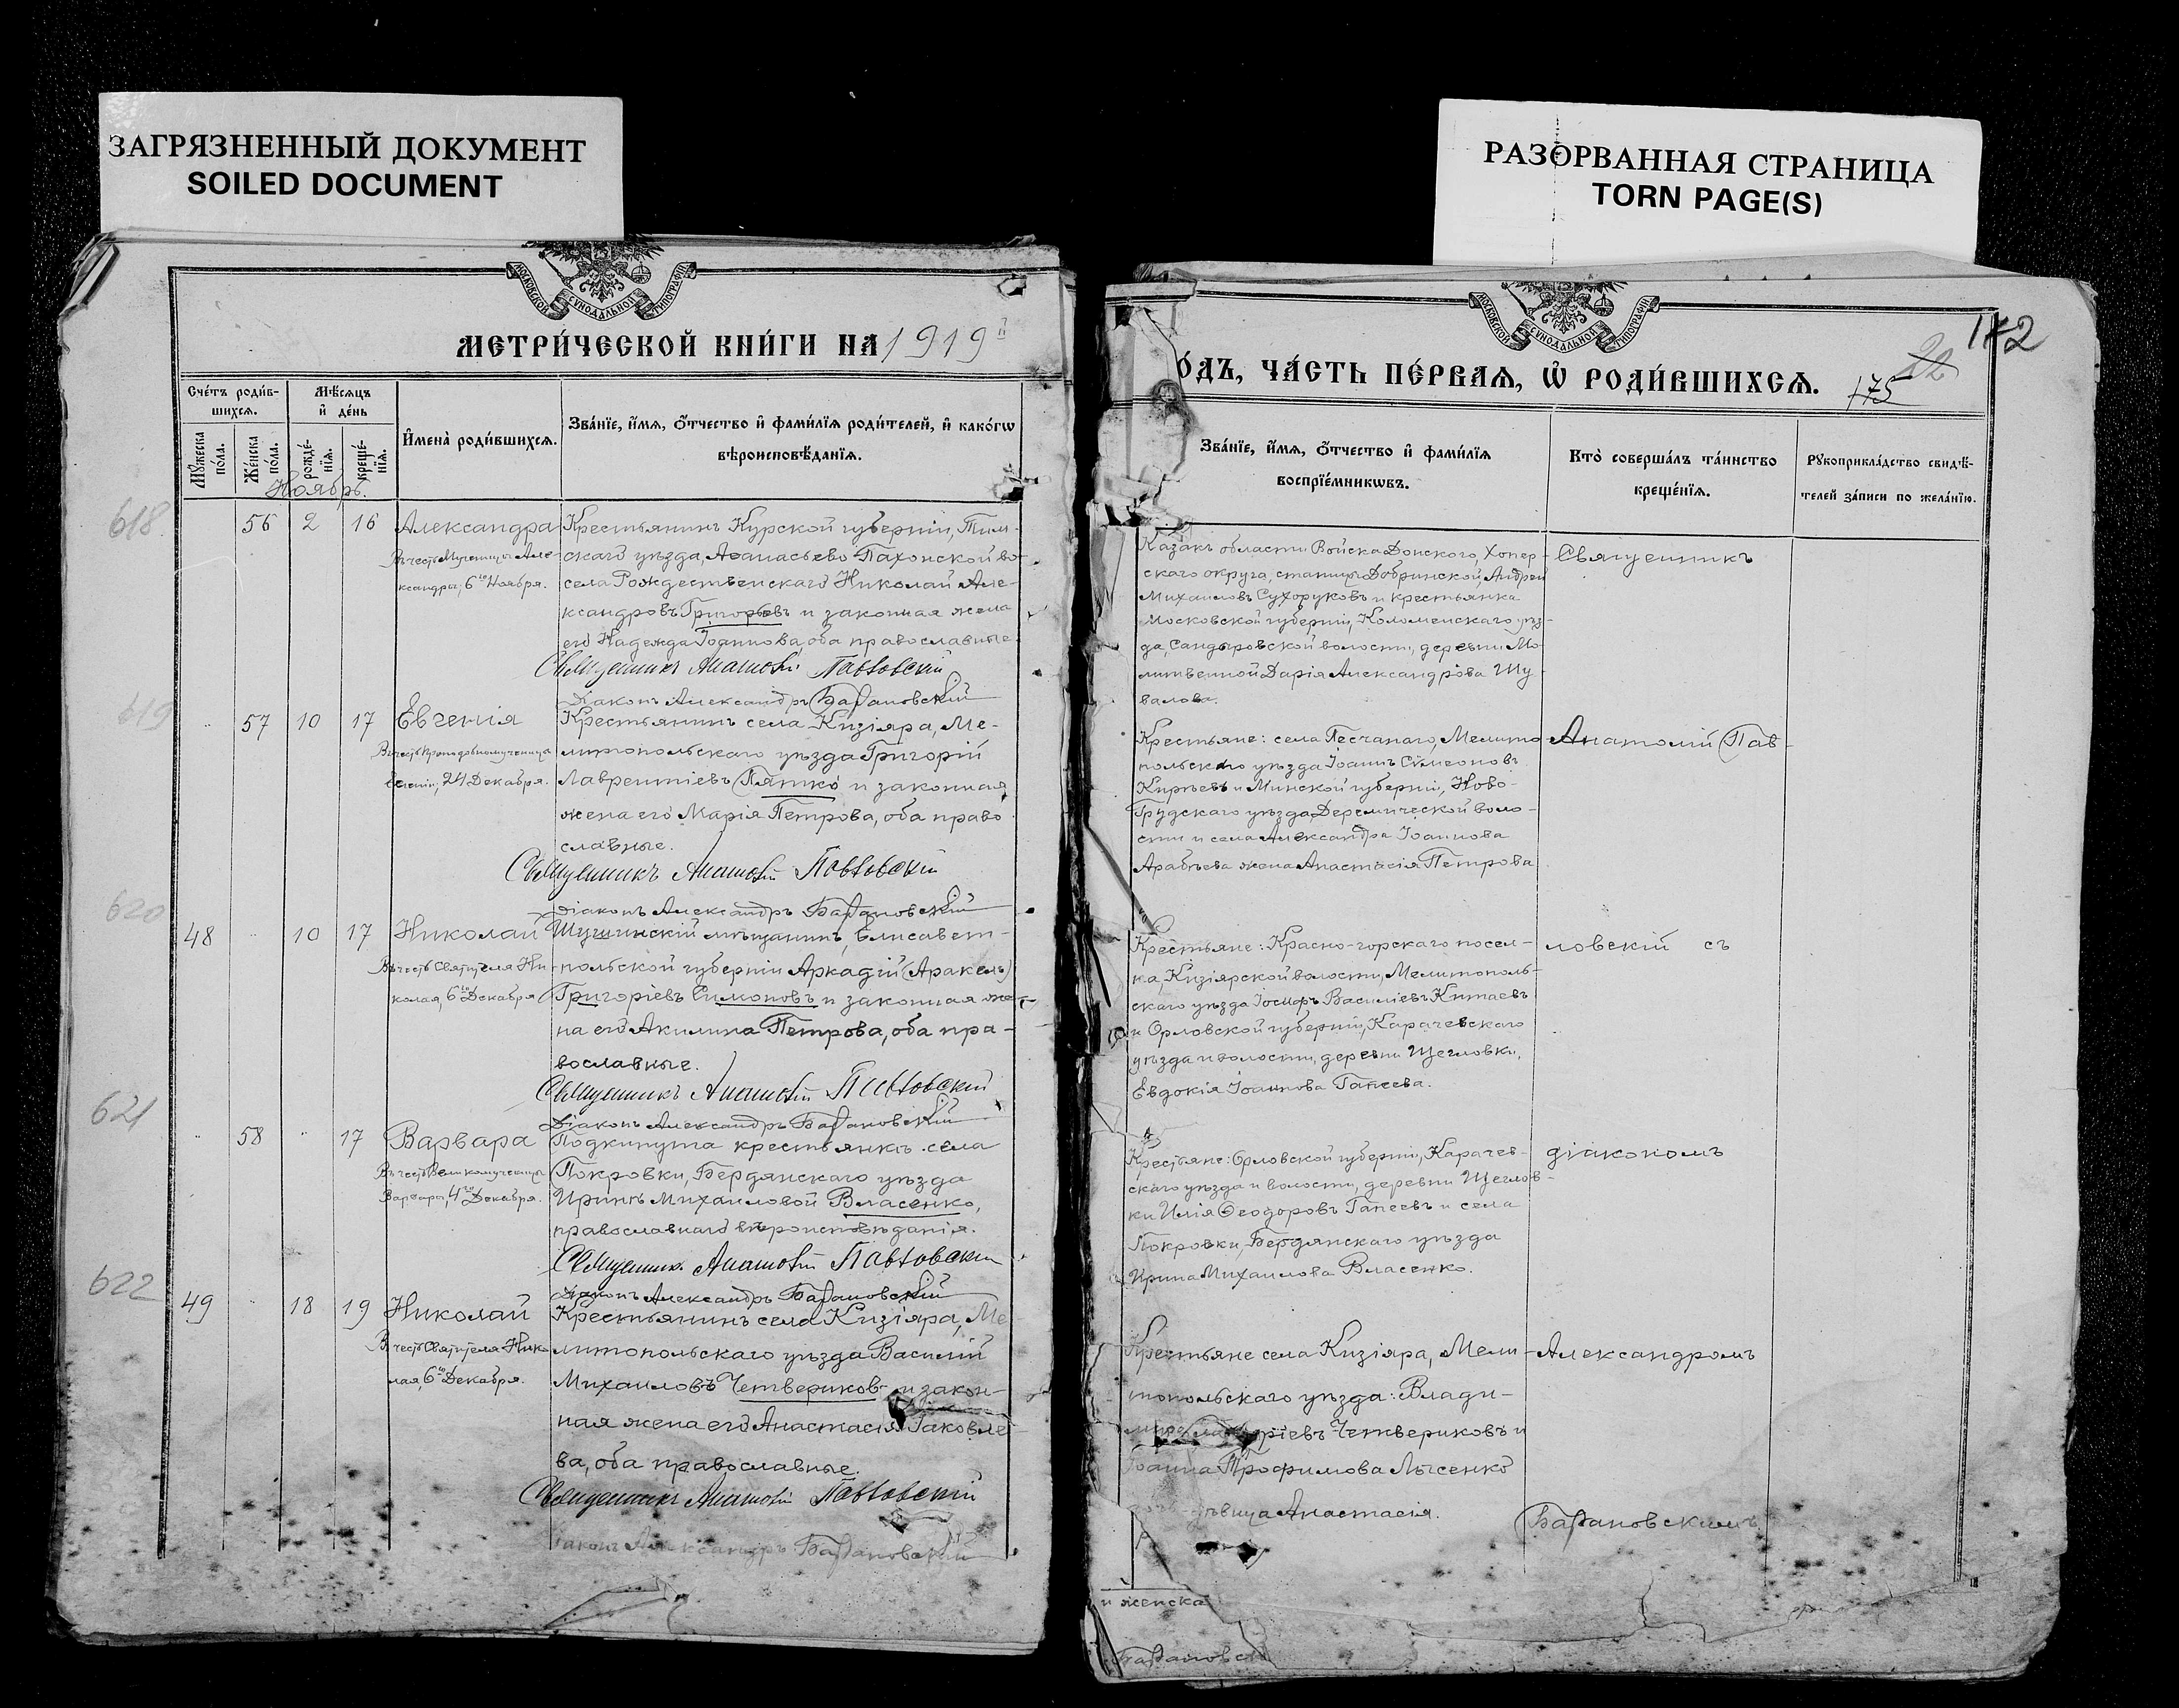 ЗАГРЯЗНЕННЫЙ ДОКУМЕНТ
SOILED DOCUMENT
РАЗОРВАННАЯ СТРАНИЦА
TORN PAGE(S)
МОСКОВСКОЙ СѴНОДАЛЬНОЙ ТИПОГРАФІИ
МЕТРИ́ЧЕСКОЙ КНИ́ГИ НА 1919
Сче́тъ роди́в-
шихсѧ.
Мѣ́сѧцъ
и҆ де́нь
Мꙋ́жеска
по́ла.
Же́нска
по́ла.
рожде́-
нїѧ.
креще́-
нїѧ.
И҆мена̀ роди́вшихсѧ.
Зва́нїе, и҆́мѧ, ѻ҆́тчество и҆ фами́лїѧ роди́телей, и҆ како́гѡ
вѣроисповѣ́данїѧ.
Ноябрь.
618
56 2 16 Александра
Въ честь Мученицы Але-
ксандры, 6го Ноября.
Крестьянинъ Курской губерніи, Тим-
скаго уѣзда, Аѳанасьево-Пахонской во-
села Рождественскаго Николай Але-
ксандровъ Григорьевъ и законная жена
его Надежда Іоаннова, оба православные.
Священникъ Анатолій Павловскій
Діаконъ Александръ Барановскій
619
57 10 17 Евгенія
Въ честь Преподобномученицы
Евгеніи, 24 Декабря.
Крестьянинъ села Кизіяра, Ме-
литопольскаго уѣзда Григорій
Лаврентіевъ Пятко и законная
жена его Марія Петрова, оба право
славные.
Священникъ Анатолій Павловскій
Діаконъ Александръ Барановскій
620
48 10 17 Николай
Въ честь Святителя Ни-
колая, 6го Декабря
Шушинскій мѣщанинъ, Елисавет-
польской губерніи Аркадій (Аракелъ)
Григоріевъ Симоновъ и законная же-
на его Акилина Петрова, оба пра-
вославные.
Священникъ Анатолій Павловскій
Діаконъ Александръ Барановскій
621
58 17 Варвара
Въ честь Великомученицы
Варвары, 4го Декабря.
Подкинута крестьянкѣ села
Покровки, Бердянскаго уѣзда
Иринѣ Михаиловой Власенко,
православнаго вѣроисповѣданія.
Священникъ Анатолій Павловскій
Діаконъ Александръ Барановскій
622
49 18 19 Николай
Въ честь Святителя Нико
лая, 6го Декабря.
Крестьянинъ села Кизіяра, Ме
литопольскаго уѣзда Василій
Михаиловъ Четвериковъ и закон-
ная жена его Анастасія Іаковле
ва, оба православные.
Священникъ Анатолій Павловскій
Діаконъ Александръ Барановскій
МОСКОВСКОЙ СѴНОДАЛЬНОЙ ТИПОГРАФІИ
О́ДЪ, ЧА́СТЬ ПЕ́РВАѦ, Ѡ҆ РОДИ́ВШИХСѦ.
175
22
172
Зва́нїе, и҆́мѧ, ѻ҆́тчество и҆ фами́лїѧ
воспрїе́мникѡвъ.
Кто̀ соверша́лъ та́инство
креще́нїѧ.
Рꙋкоприкла́дство свидѣ́-
телей за́писи по жела́нїю.
Казакъ области Войска Донского, Хопер-
скаго округа, станицы Добринской, Андрей
Михаиловъ Сухоруковъ и крестьянка
Московской губерніи, Коломенскаго уѣз-
да, Сандыровской волости, деревни Мо
литвенной Дарія Александрова Шу
валова.
Священникъ
Крестьяне: села Песчанаго, Мелито
польскаго уѣзда Іоаннъ Сѵмеоновъ
Кирѣевъ и Минской губерніи, Ново-
Грудскаго уѣзда, Деремической воло-
сти и села Александра Іоаннова
Арабѣева жена Анастасія Петрова
Анатолій Пав-
Крестьяне: Красно-горскаго посел-
ка, Кизіярской волости, Мелитополь-
скаго уѣзда Іосифъ Василіевъ Китаевъ
и Орловской губерніи, Карачевскаго
уѣзда и волости, деревни Щегловки,
Евдокія Іоаннова Гапеева.
ловскій съ
Крестьяне: Орловской губерніи, Карачев-
скаго уѣзда и волости, деревни Щеглов-
ки Илія Ѳеодоровъ Гапеевъ и села
Покровки, Бердянскаго уѣзда
Ирина Михаилова Власенко.
діакономъ
Крестьяне села Кизіяра, Мели-
топольскаго уѣзда: Влади-
ріевъ Четвериковъ и
Іоанна Трофимова Лысенко
дочь дѣвица Анастасія.
Александромъ
Барановскимъ
и женска
Барановс